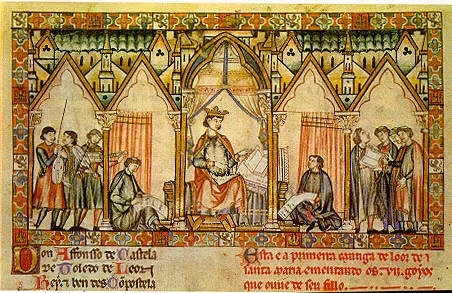 Don Affonsso de Castela
de Toledo de Leon
Rey e ben des Conpostela
Esta e a primeira cantiga de loor de
santa maria ementando os .vii. goyos
que ouve de seu fillo.